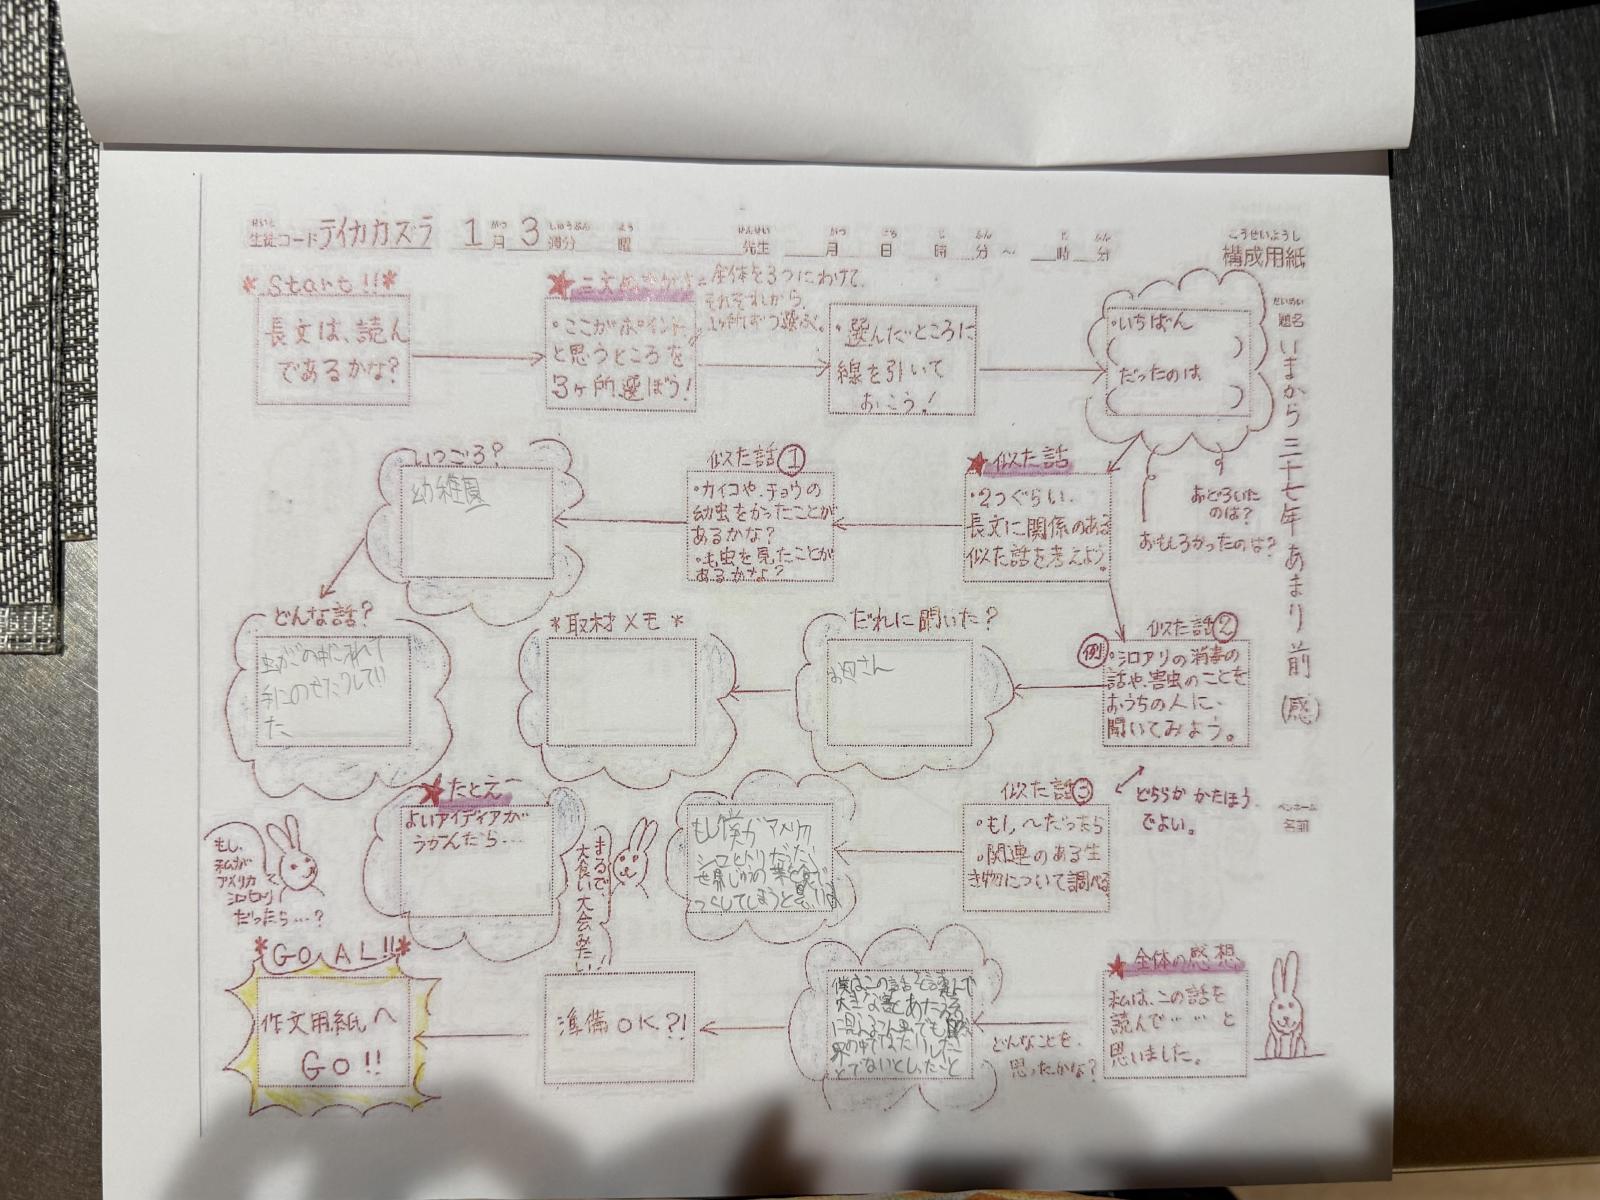 生徒コード テイカカズラ 1月 3週分 曜 先生 月 日 時 分 ～ 時 分
せいと がつ しゅうぶん よう せんせい がつ にち じ ふん じ ふん
こうせいようし
構成用紙
だいめい
題名
いまから三十七年あまり前(感)
ペンネーム
名前
*Start!!*
長文は、読ん
であるかな?
★三文
全体を3つにわけて、
それぞれから、
1ヶ所ずつ選ぶ。
・ここがポイントだ
と思うところを
3ヶ所、選ぼう!
・選んだところに
線を引いて
おこう!
・いちばん
( )
だったのは
( )
おどろいた
のは?
おもしろかったのは?
★似た話
・2つぐらい、
長文に関係のある
似た話を考えよう。
似た話①
・カイコや、チョウの
幼虫をかったことが
あるかな?
・毛虫を見たことが
あるかな?
いつごろ?
幼稚園
どんな話?
虫かごの中に入れて
手にのせたりしてい
た
似た話②
例
・シロアリの消毒の
話や、害虫のことを
おうちの人に、
聞いてみよう。
どちらか かたほう
でよい。
だれに聞いた?
お母さん
*取材メモ*
似た話③
・もし、〜だったら
・関連のある生
き物について調べる
もし僕がアメリカ
シロヒトリだったら
世界じゅうの葉を食べ
つくしてしまうと思います
★たとえ
よいアイディアが
うかんだら…
まるで、
大食い大会みたい
もし、
私が
アメリカ
シロヒトリ
だったら…?
★全体の感想
私は、この話を
読んで……と
思いました。
どんなことを、
思ったかな?
僕はこの話を読んで
準備OK?!
*GOAL!!*
作文用紙へ
GO!!